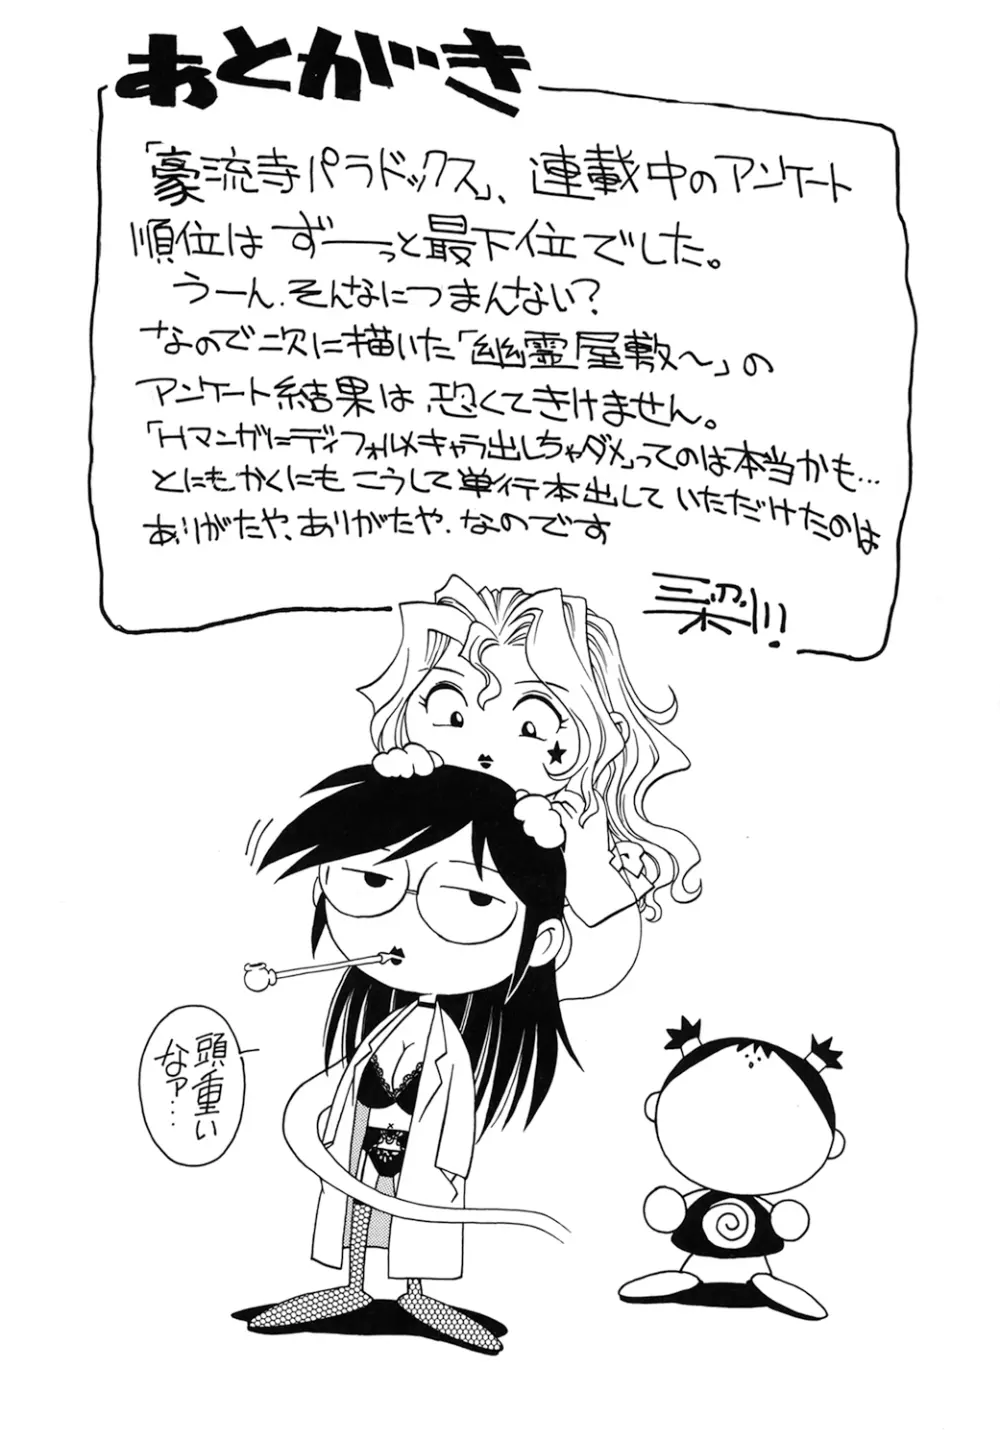 あとがき
「豪流寺パラドックス」、連載中のアンケート
順位は ずーっと最下位でした。
うーん.そんなにつまんない?
なので次に描いた「幽霊屋敷〜」の
アンケート結果は 恐くてきけません。
「Hマンガにディフォルメキャラ出しちゃダメ」ってのは本当かも…
とにもかくにも こうして単行本出して いただけたのは
ありがたや、ありがたや. なのです
頭重い
なァ…